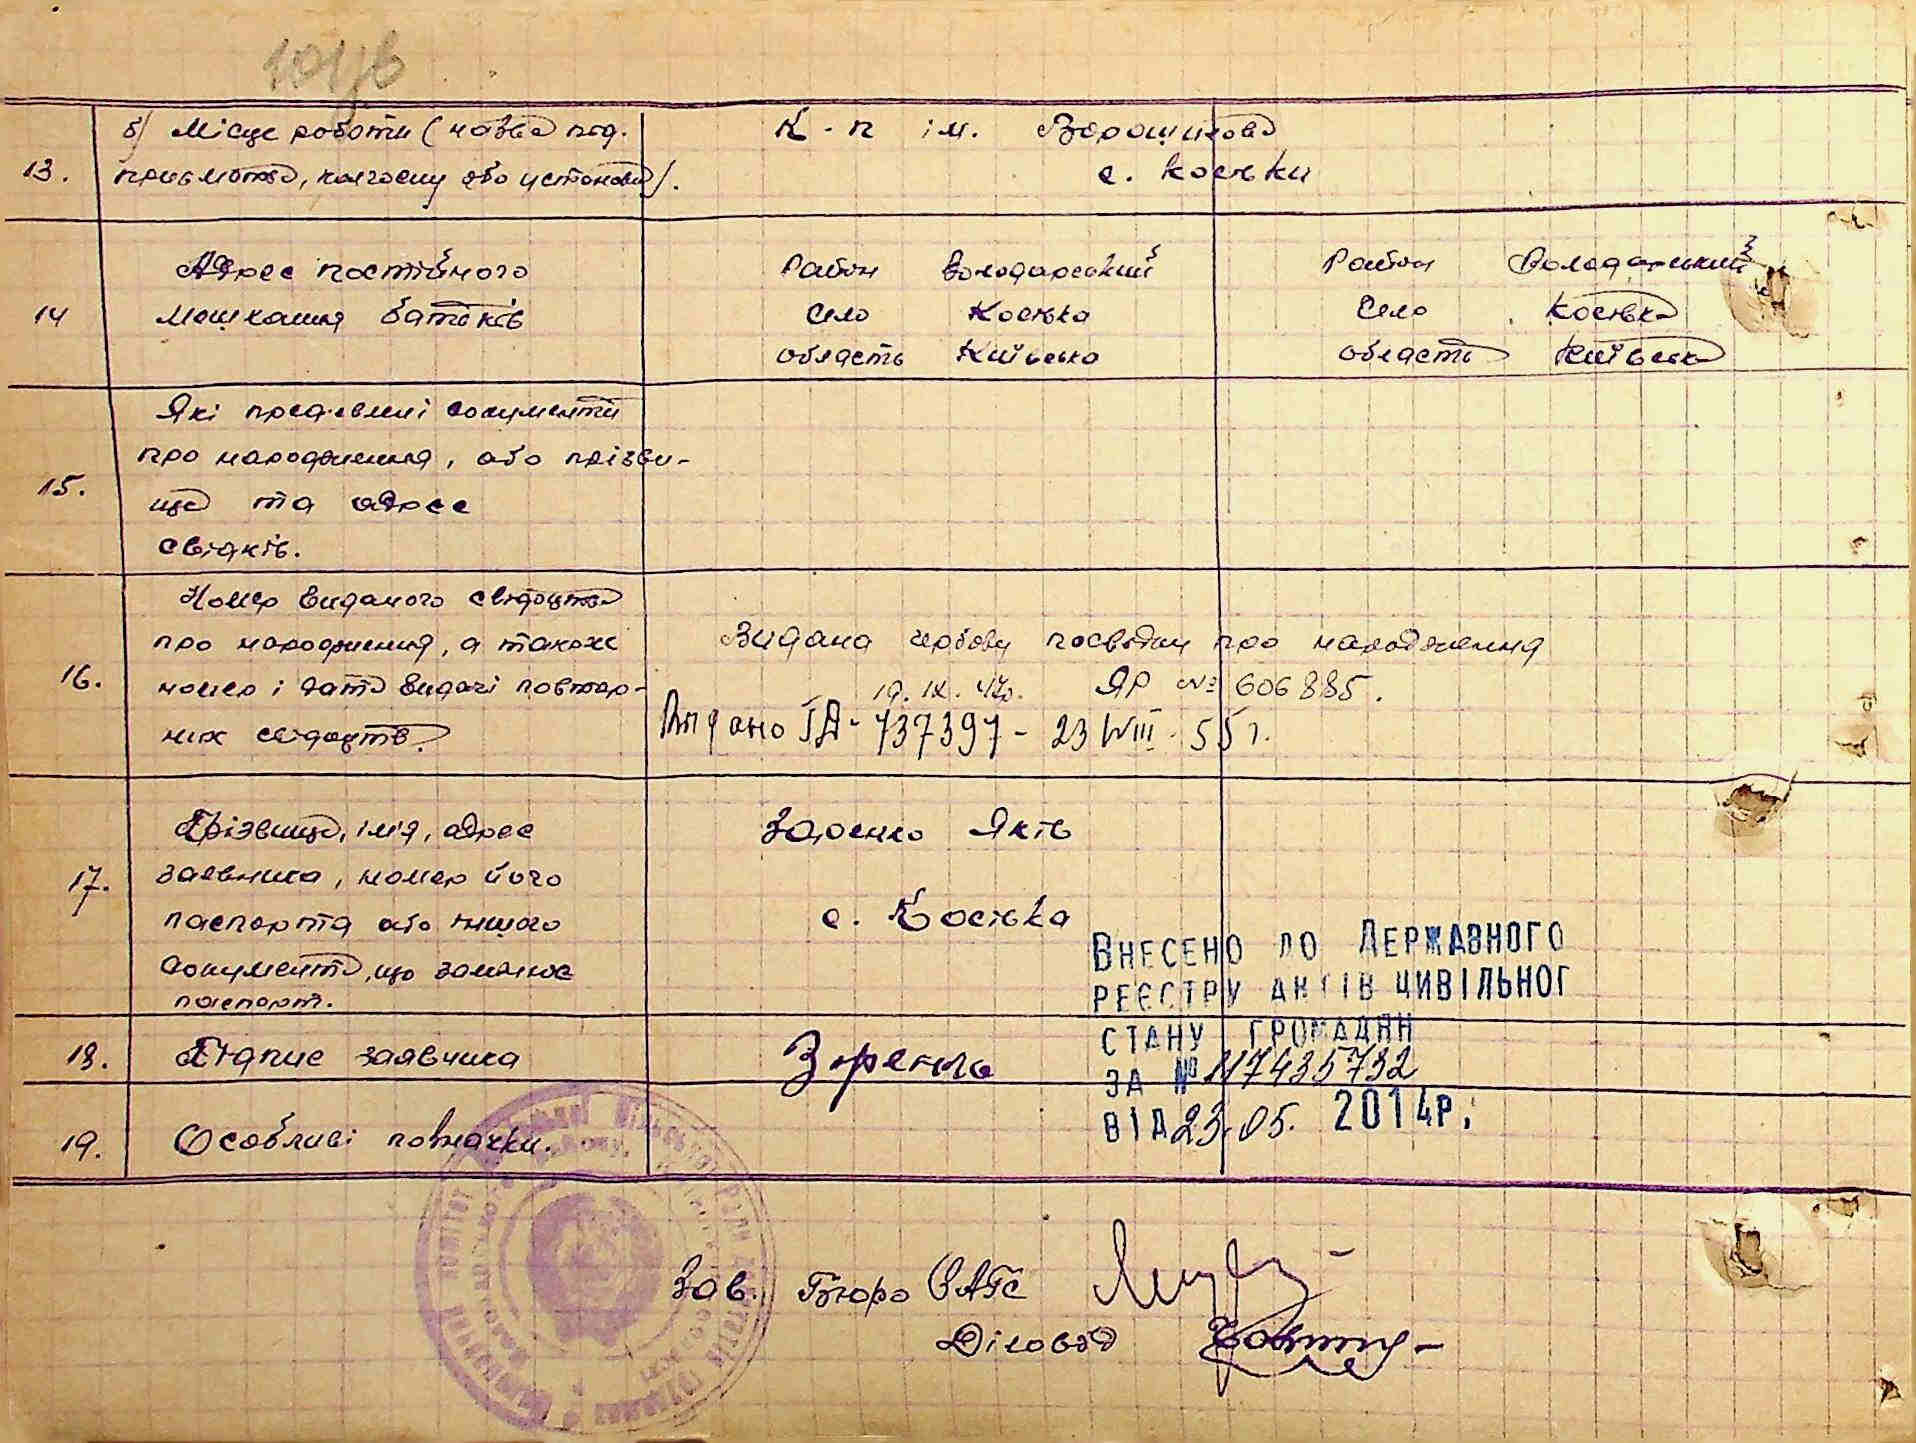 13. б) Місце роботи (назва під-
приємства, колгоспу або установи).
К-п ім. Ворошилова
с. Косівки
14 Адрес постійного
мешкання батьків
Район Володарський
Село Косівка
область Київська
Район Володарський
Село Косівка
область Київська
15. Які пред'явлені документи
про народження, або прізви-
ще та адрес
свідків.
16. Номер виданого свідоцтва
про народження, а також
номер і дата видачі повтор-
них свідоцтв.
Видана чергову посвідку про народження
19. IX. 47р. ЯР № 606885.
Видано 737397 - 23/VIII - 55 г.
17. Прізвище, ім'я, адрес
заявника, номер його
паспорта або іншого
документа, що заміняє
паспорт.
Зоренко Яків
с. Косівка
ВНЕСЕНО ДО ДЕРЖАВНОГО
РЕЄСТРУ АКТІВ ЦИВІЛЬНОГ
СТАНУ ГРОМАДЯН
ЗА № 117435732
ВІД 23.05. 2014Р.
18. Підпис заявника
19. Особливі позначки.
Зав. Бюро ЗАГС
Діловод